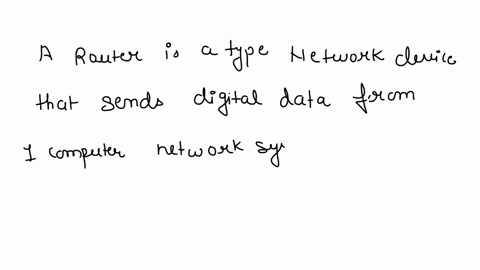 A Router is a type Network device
that sends digital data from
1 computer network sy